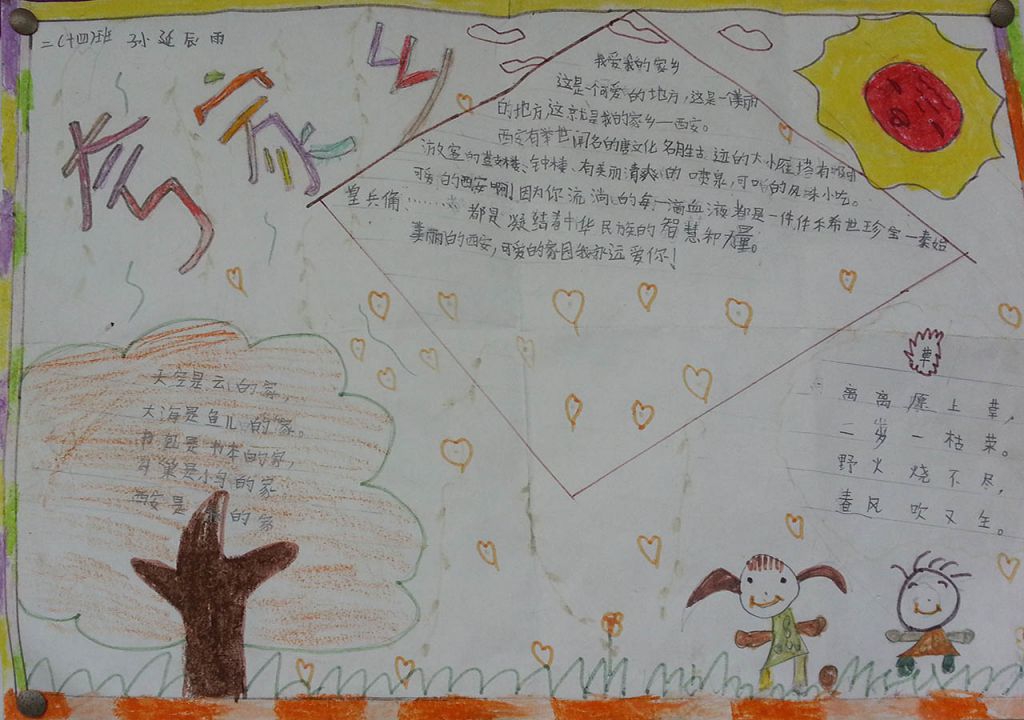 二(十四)班 孙延辰雨
家乡
我爱我的家乡
这是一个可爱的地方,这是一个美丽
的地方,这就是我的家乡—西安。
西安有举世闻名的唐文化 名胜古迹的大小雁塔有
的鼓楼、钟楼、有美丽清爽的喷泉,可口的风味小吃。
可爱的西安啊!因为你流淌的每一滴血液都是一件件稀世珍宝—秦始
皇兵俑……… 都是凝结着中华民族的智慧和力量。
美丽的西安,可爱的家园我永远爱你!
天空是云的家,
大海是鱼儿的家。
书包是书本的家,
鸟巢是小鸟的家。
西安是我的家
草
离离原上草,
二岁一枯荣。
野火烧不尽,
春风吹又生。